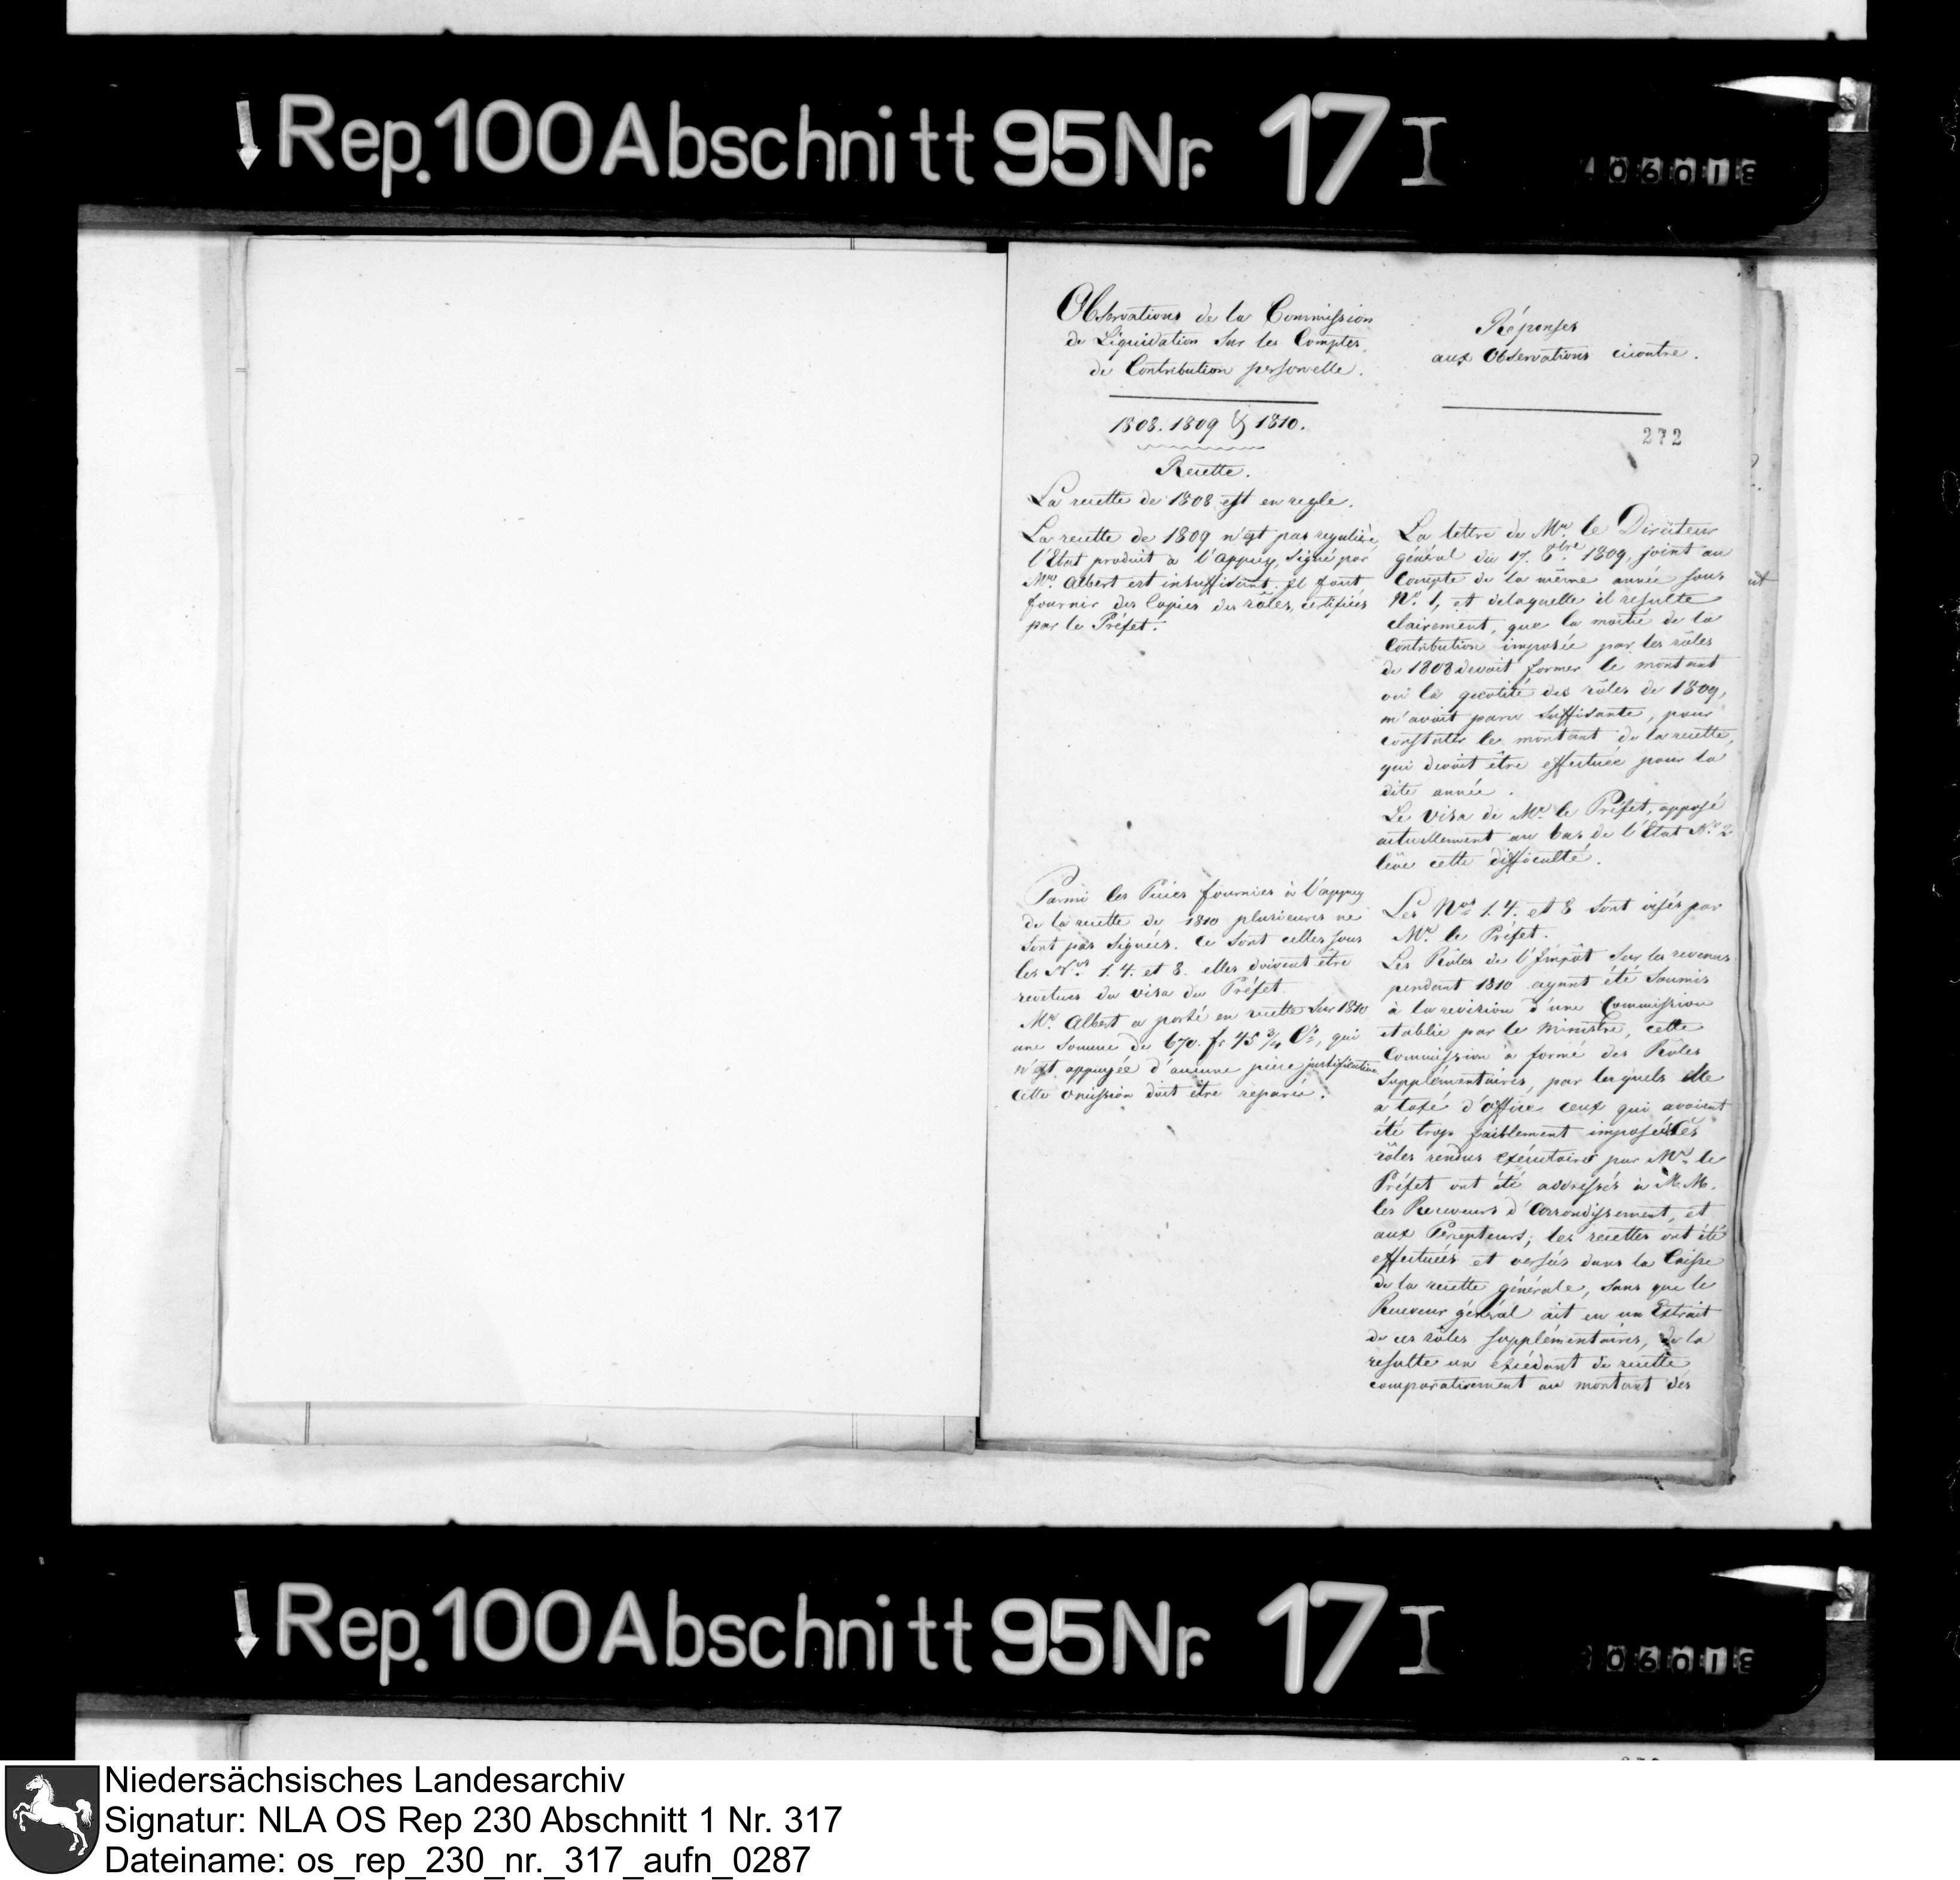 ↓ Rep. 100 Abschnitt 95 Nr. 17 I
406018
Observations de la Commission
de Liquidation sur les Comptes
de Contribution personelle.
1808. 1809 & 1810.
Recette.
La recette de 1808 est en regle.
La recette de 1809 n'est pas regulière
l'Etat produit à l'appuy, signé par
Mr. Albert est insuffisant. Il faut
fournir des Copies des rôles, certifiées
par le Préfet.
Parmi les Pièces fournies à l'appuy
de la recette de 1810 plusieures ne
sont pas signées. Ce sont celles sous
les Nos. 1. 4. et 8. elles doivent être
revetues du visa du Préfet.
Mr. Albert a porté en recette sur 1810
une somme de 670. fr 45 3/4 Cs, qui
n'est appuyée d'aucune piece justificative
Cette omission doit être reparée.
Réponses
aux Observations cicontre.
272
La lettre de Mr. le Directeur
général du 17. 8bre 1809, joint au
Compte de la même année sous
No. 1, et delaquelle il resulte
clairement, que la moitié de la
Contribution imposée par les rôles
de 1808 devait former le montant
ou la quotité des rôles de 1809,
m'avait paru suffisante, pour
constater le montant de la recette,
qui devoit être effectuée pour la
dite année.
Le visa de Mr. le Préfet, apposé
actuellement au bas de l'Etat No. 2
lève cette difficulté.
Les Nos 1. 4. et 8 sont visés par
Mr. le Préfet.
Les Rôles de l'Impôt sur les revenus
pendant 1810 ayant été soumis
à la revision d'une Commission
etablie par le Ministre, cette
Commission à formé des Rôles
Supplémentaires, par lesquels elle
a taxé d'office ceux qui avoient
été trop faiblement imposés. Ces
rôles rendus exécutoires par Mr. le
Préfet ont été addressés à M. M.
les Receveurs d'Arrondissement, et
aux Percepteurs; les recettes ont été
effectuées et versées dans la Caisse
de la recette générale, sans que le
Receveur général ait eu un Extrait
de ces rôles supplémentaires, de la
resulte un excédant de recette
comparativement au montant des
↓ Rep. 100 Abschnitt 95 Nr. 17 I
06018
Niedersächsisches Landesarchiv
Signatur: NLA OS Rep 230 Abschnitt 1 Nr. 317
Dateiname: os_rep_230_nr._317_aufn_0287